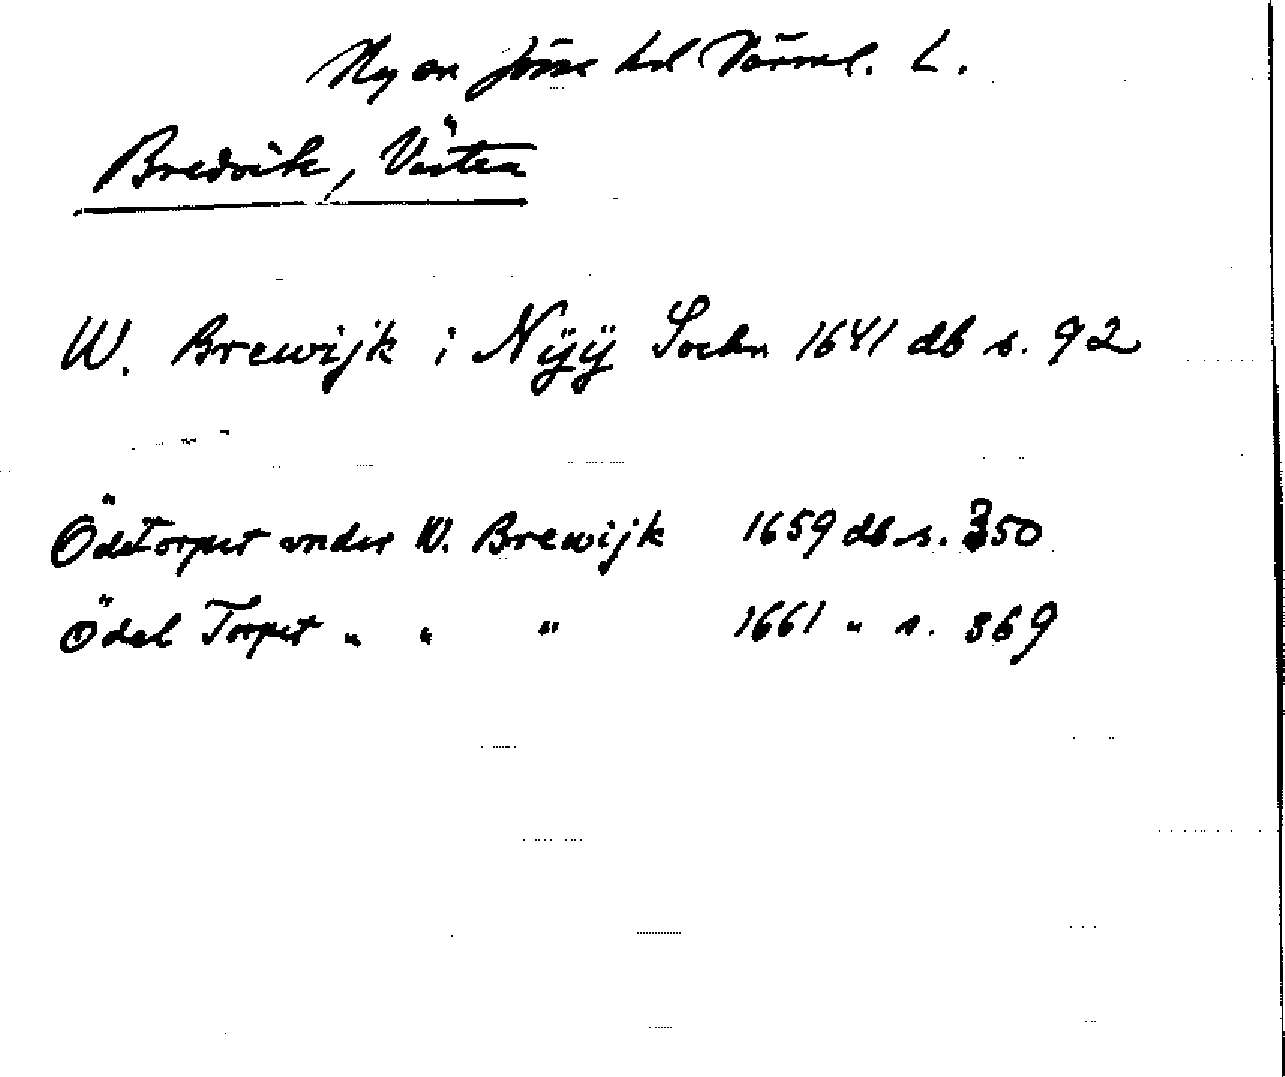 Ny sn Jösse hd Värml. L.
Bredvik, Västra
W. Brewijk i Nÿÿ Sochn 1641 db s. 92
Ödetorpet vnder W. Brewijk 1659 db s. 350
Ödel Torpet " " " 1661 " s. 369